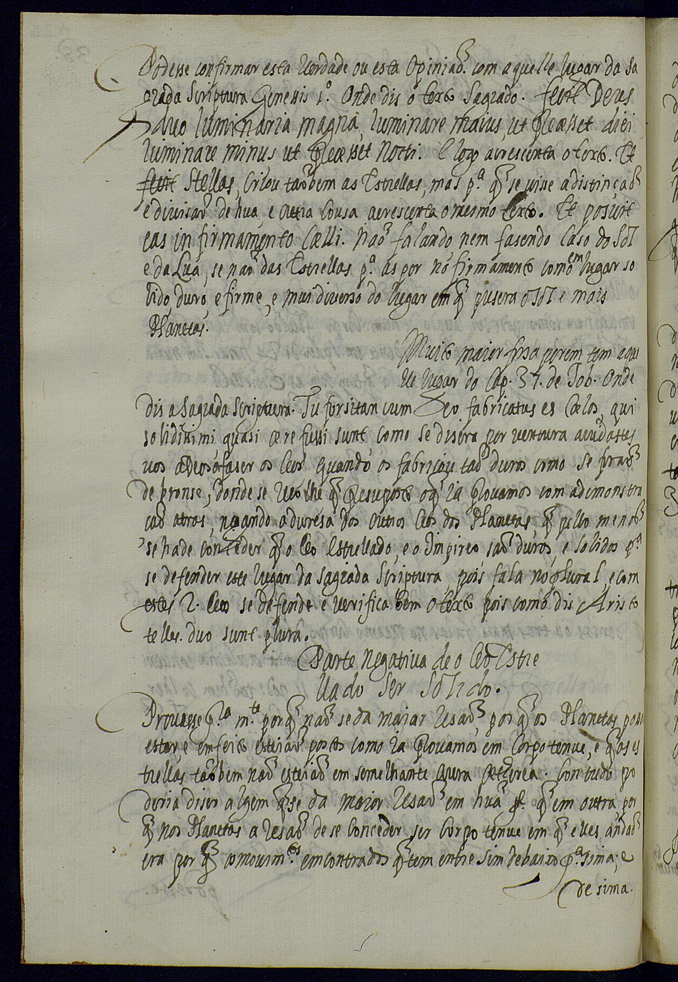 Podesse confirmar esta verdade ou esta Opiniaõ com aquelle lugar da Sa
grada Scriptura Genesis 1º. Onde dis o texto Sagrado. fecit Deus
duo luminaria magna, luminare maius ut præesset diei
luminare minus ut præesset nocti. E logo acrescenta o texto. Et
fecit Stellas, Criou tambem as Estrellas, mas pª. q̃ se vise a distinçaõ
e divisaõ de hua, e outra Cousa acrescenta o mesmo texto. Et posuit
eas in firmamento Cælli. naõ falando nem fasendo Caso do Sol
e da Lua, se naõ das Estrellas pª. as por no firmamento como em lugar so
lido duro, e firme, e mui diverso do lugar em q̃ pusera o Sol e mais
Planetas.
Muito maior forsa porem tem aque
lle lugar do Cap. 37. de Job. Onde
dis a Sagrada Scriptura. Tu forsitan cum eo fabricatus es Cælos, qui
solidissimi quasi ære fussi sunt como se disera por ventura ajudastes
vos a Deos a faser os Ceos quando os fabricou taõ duros como se foraõ
de bronse, donde se recolhe q̃ presuposto o q̃ ja provamos com a demonstra
caõ atras, negando a duresa dos outros Ceos dos Planetas q̃ pello menos
se hade conceder q̃ o Ceo Estrellado, e o Impireo saõ duros, e solidos pª.
se defender este lugar da Sagrada Scriptura pois fala no plural, e com
estes 2. Ceos se defende e verifica bem o texto pois como dis Aristo
telles. duo sunt plura.
Parte negativa de o Ceo Estre
llado ser Solido.
Provasse pla. mte. porq̃ naõ se da maior resaõ, porq̃ os Planetas posaõ
estar, e em feito estejaõ postos como ja provamos em Corpo tenue, e q̃ as es
trellas tambem naõ estejaõ em semelhante aura ætherea. Contudo po
deria diser algem q̃ se da maior resaõ em hua q̃ em outra por
q̃ nos Planetas a resaõ de se conceder ser Corpo tenue em q̃ elles andaõ
era por q̃ comovimtos. encontrados q̃ tem entre sim debaixo pª. sima, e
de sima.